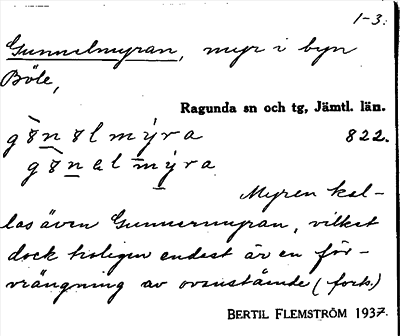 1-3:
Gunnelmyran, myr i byn
Böle,
Ragunda sn och tg, Jämtl. län.
822.
Myren kal-
las även Gunnermyran, vilket
dock troligen endast är en för-
vrängning av ovanstående (forts.)
BERTIL FLEMSTRÖM 1937.